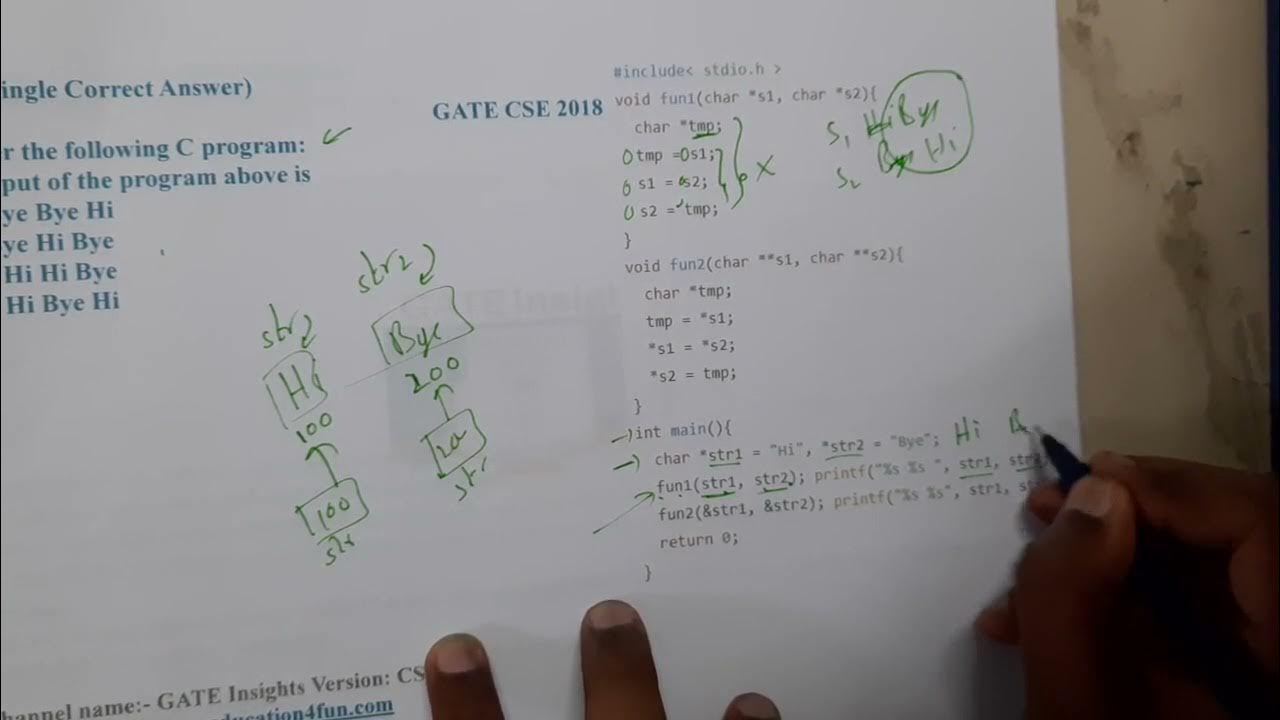 ingle Correct Answer)
GATE CSE 2018
r the following C program:
put of the program above is
ye Bye Hi
ye Hi Bye
Hi Hi Bye
Hi Bye Hi
#include< stdio.h >
void fun1(char *s1, char *s2){
char *tmp;
tmp =s1;
s1 = s2;
s2 = tmp;
}
void fun2(char **s1, char **s2){
char *tmp;
tmp = *s1;
*s1 = *s2;
*s2 = tmp;
}
int main(){
char *str1 = "Hi", *str2 = "Bye"; Hi B
fun1(str1, str2); printf("%s %s ", str1, str2
fun2(&str1, &str2); printf("%s %s", str1, s
return 0;
}
S1 Hi Bye
S2 Bye Hi
X
str2
Bye
200
Hi
100
100
GATE Insight
hannel name:- GATE Insights Version: CS
ducation4fun.com